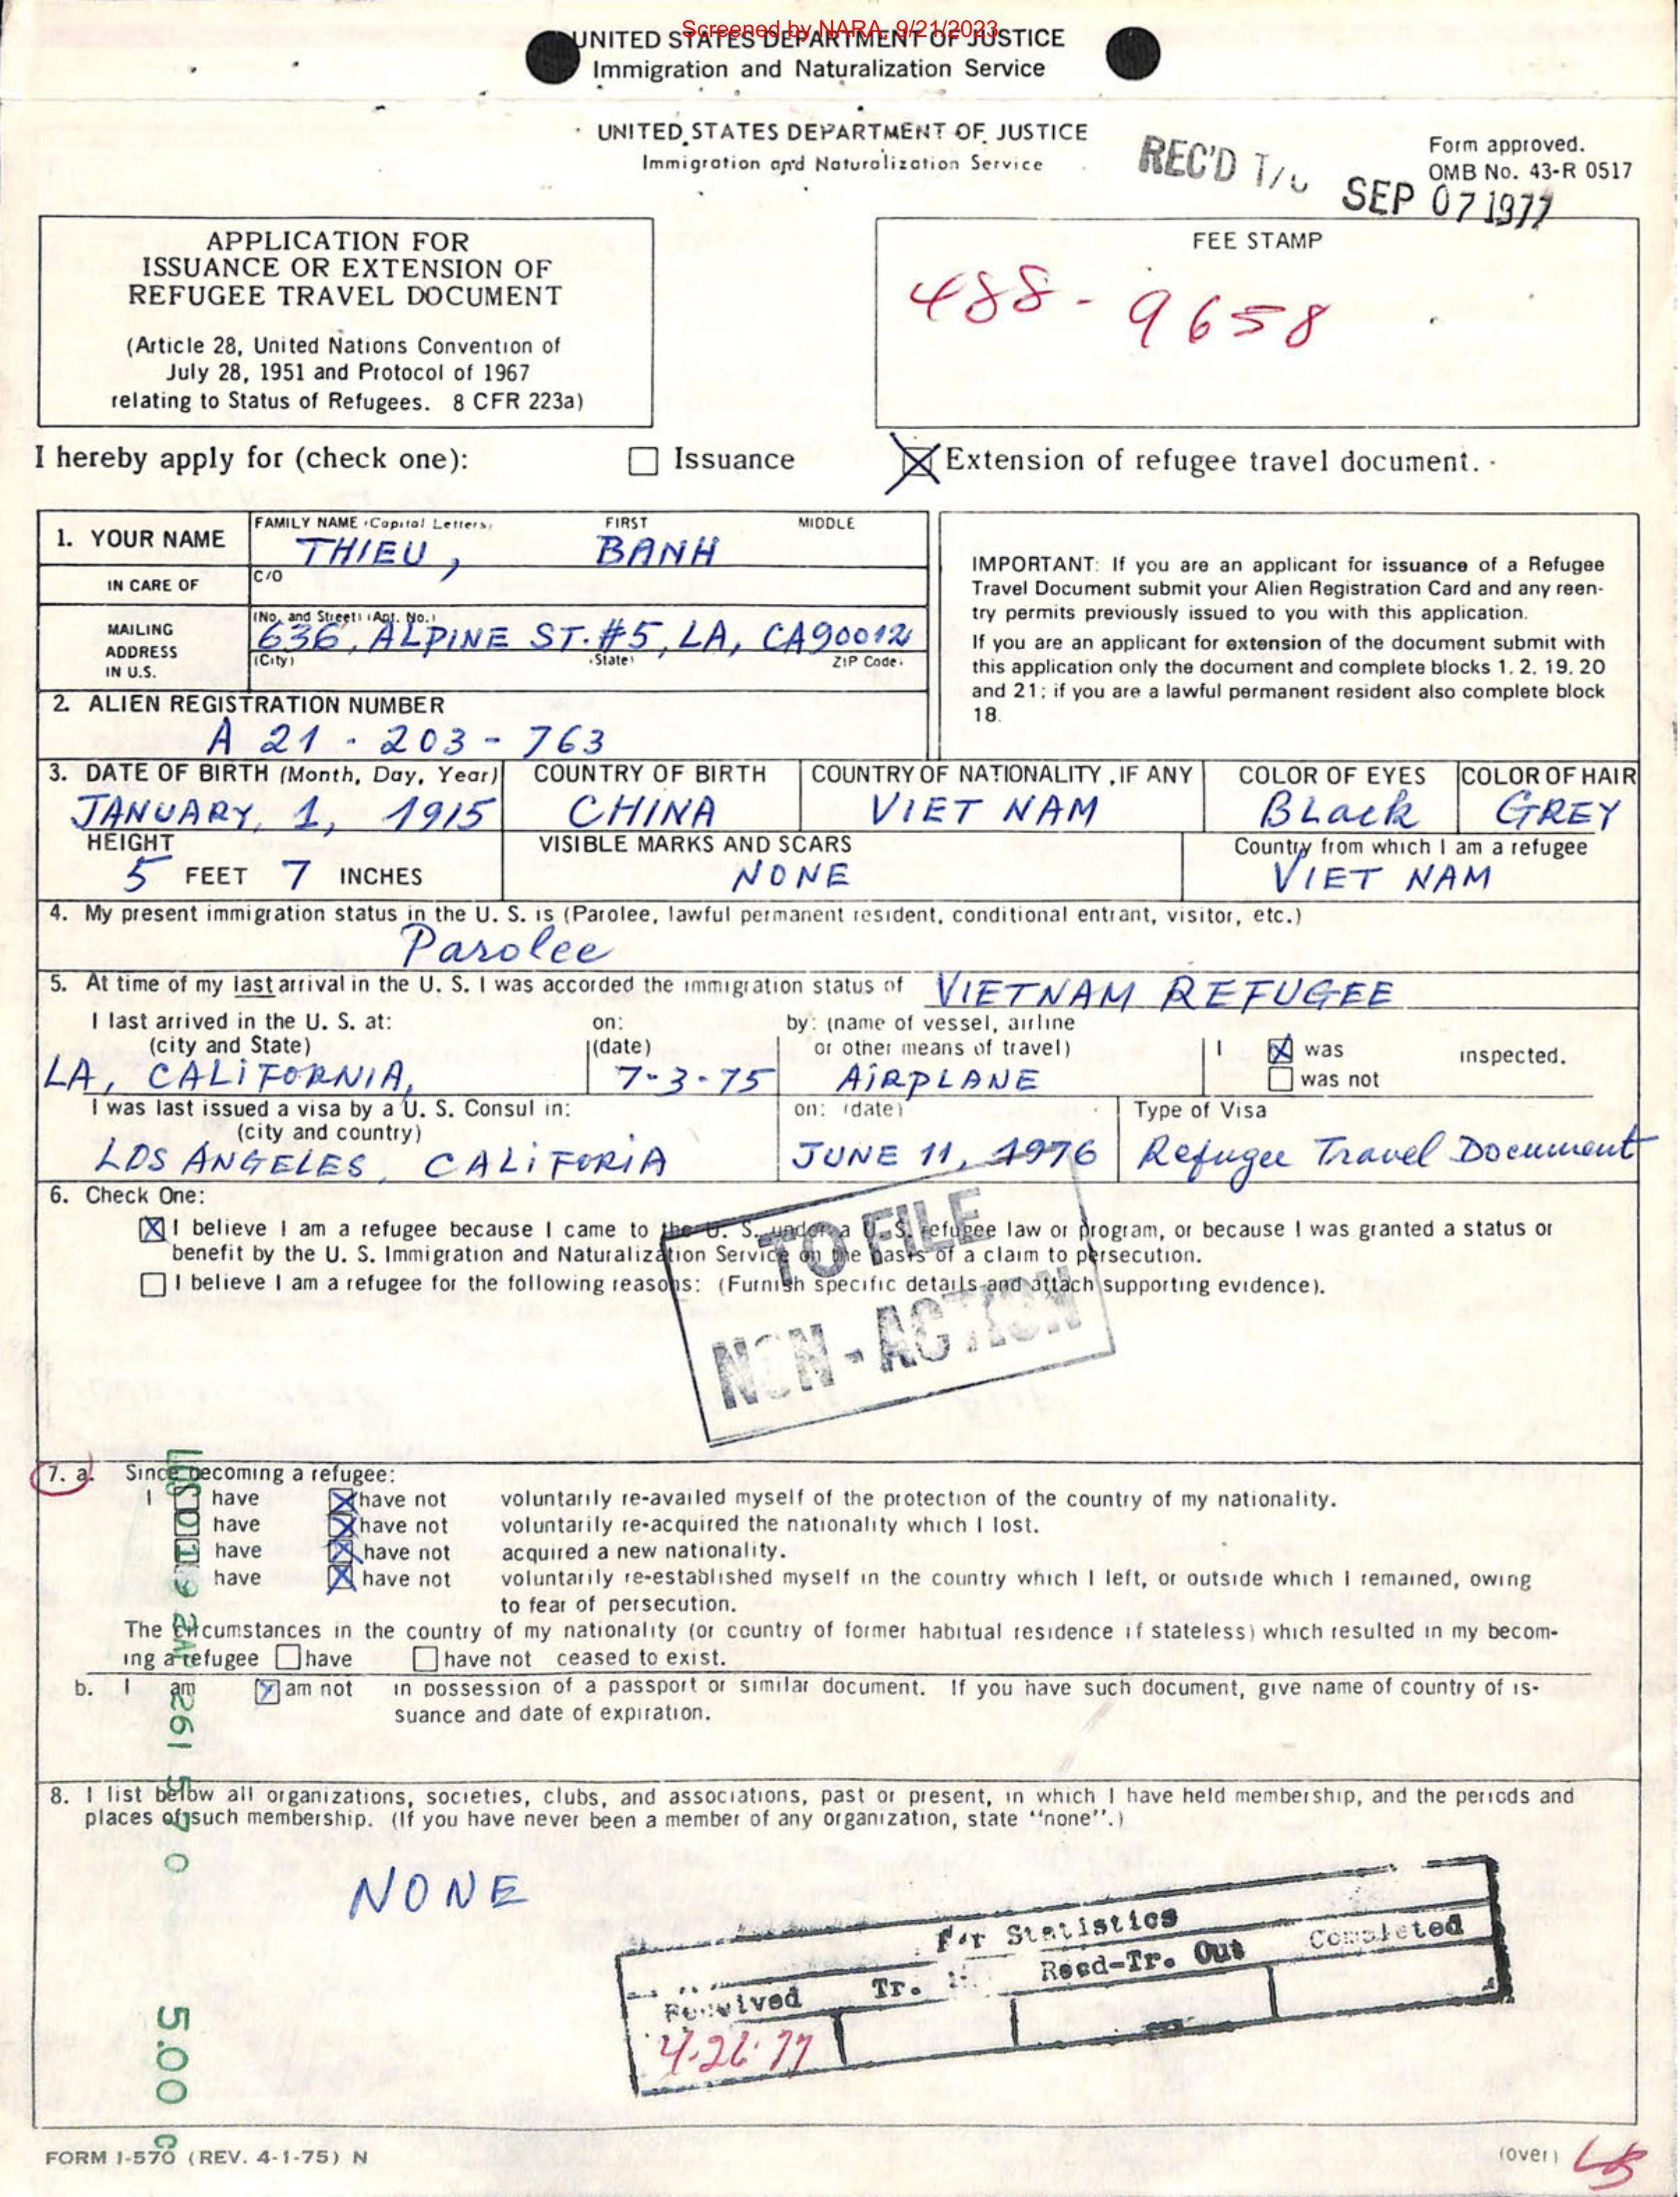 Screened by NARA, 9/21/2023
UNITED STATES DEPARTMENT OF JUSTICE
Immigration and Naturalization Service
UNITED STATES DEPARTMENT OF JUSTICE
Immigration and Naturalization Service
REC'D
SEP 07 1977
Form approved.
OMB No. 43-R 0517
APPLICATION FOR
ISSUANCE OR EXTENSION OF
REFUGEE TRAVEL DOCUMENT
(Article 28, United Nations Convention of
July 28, 1951 and Protocol of 1967
relating to Status of Refugees. 8 CFR 223a)
FEE STAMP
488-9658
I hereby apply for (check one): Issuance Extension of refugee travel document.
1. YOUR NAME FAMILY NAME (Capital Letters) FIRST MIDDLE
THIEU, BANH
IN CARE OF C/O
MAILING ADDRESS IN U.S. (No. and Street) (Apt. No.)
636, ALPINE ST. #5, LA, CA 90012
(City) (State) ZIP Code
2. ALIEN REGISTRATION NUMBER
A 21 - 203 - 763
IMPORTANT: If you are an applicant for issuance of a Refugee
Travel Document submit your Alien Registration Card and any reen-
try permits previously issued to you with this application.
If you are an applicant for extension of the document submit with
this application only the document and complete blocks 1, 2, 19, 20
and 21; if you are a lawful permanent resident also complete block
18.
3. DATE OF BIRTH (Month, Day, Year) COUNTRY OF BIRTH COUNTRY OF NATIONALITY, IF ANY COLOR OF EYES COLOR OF HAIR
JANUARY, 1, 1915 CHINA VIET NAM BLack GREY
HEIGHT VISIBLE MARKS AND SCARS Country from which I am a refugee
5 FEET 7 INCHES NONE VIET NAM
4. My present immigration status in the U. S. is (Parolee, lawful permanent resident, conditional entrant, visitor, etc.)
Parolee
5. At time of my last arrival in the U. S. I was accorded the immigration status of VIETNAM REFUGEE
I last arrived in the U. S. at: on: by: (name of vessel, airline
(city and State) (date) or other means of travel) I was inspected.
LA, CALiFORNIA, 7-3-75 AiRPLANE was not
I was last issued a visa by a U. S. Consul in: on: (date) Type of Visa
(city and country)
LOS ANGELES, CALiFORiA JUNE 11, 1976 Refugee Travel Document
6. Check One:
I believe I am a refugee because I came to the U. S. under a U. S. refugee law or program, or because I was granted a status or
benefit by the U. S. Immigration and Naturalization Service on the basis of a claim to persecution.
I believe I am a refugee for the following reasons: (Furnish specific details and attach supporting evidence).
TO FILE
NON-ACTION
7. a. Since becoming a refugee:
I have have not voluntarily re-availed myself of the protection of the country of my nationality.
have have not voluntarily re-acquired the nationality which I lost.
have have not acquired a new nationality.
have have not voluntarily re-established myself in the country which I left, or outside which I remained, owing
to fear of persecution.
The circumstances in the country of my nationality (or country of former habitual residence if stateless) which resulted in my becom-
ing a refugee have have not ceased to exist.
b. I am am not in possession of a passport or similar document. If you have such document, give name of country of is-
suance and date of expiration.
8. I list below all organizations, societies, clubs, and associations, past or present, in which I have held membership, and the periods and
places of such membership. (If you have never been a member of any organization, state "none".)
NONE
For Statistics
Received Tr. Recd-Tr. Out Completed
4-26-77
5.00
FORM I-570 (REV. 4-1-75) N
(over)